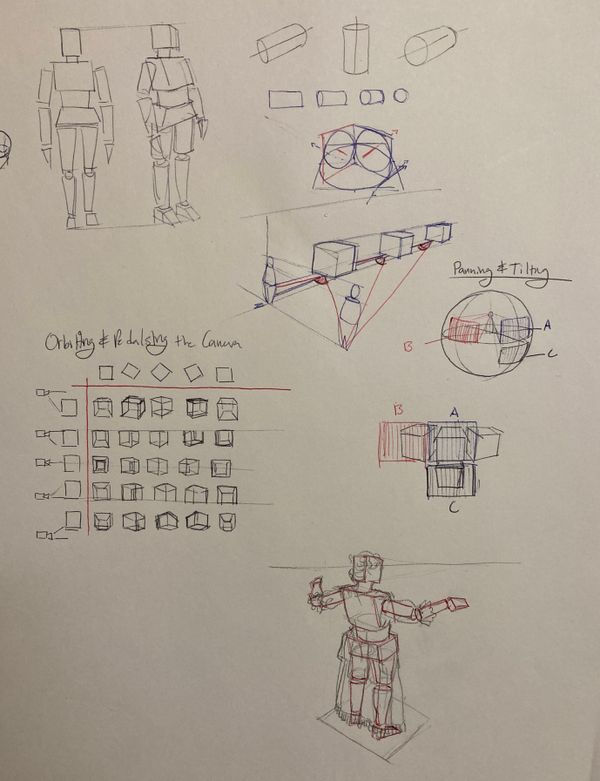 Panning & Tilting
A
B
C
Orbiting & Pedalsing the Camera
B
A
C